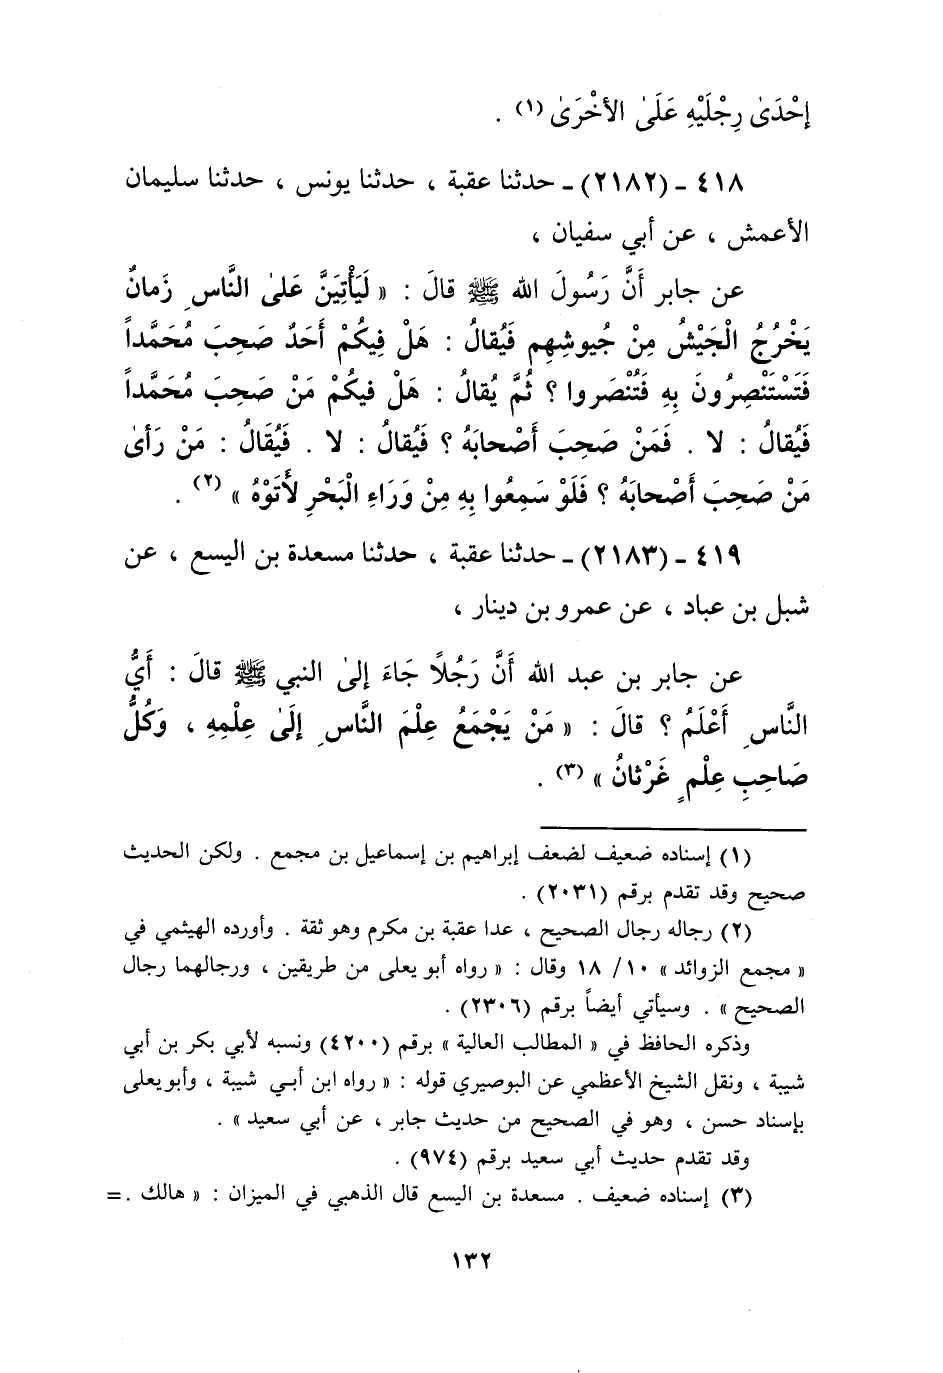 إِحْدَىٰ رِجْلَيْهِ عَلَىٰ الأُخْرَىٰ (١) .
٤١٨ ـ (٢١٨٢) ـ حدثنا عقبة ، حدثنا يونس ، حدثنا سليمان
الأعمش ، عن أبي سفيان ،
عن جابر أَنَّ رَسُولَ الله ﷺ قالَ : « لَيَأْتِيَنَّ عَلىٰ النَّاسِ زَمانٌ
يَخْرُجُ الْجَيْشُ مِنْ جُيوشِهِم فَيُقالُ : هَلْ فِيكُمْ أَحَدٌ صَحِبَ مُحَمَّداً
فَتَسْتَنْصِرُونَ بِهِ فَتُنْصَروا ؟ ثُمَّ يُقالُ : هَلْ فيكُمْ مَنْ صَحِبَ مُحَمَّداً
فَيُقالُ : لا . فَمَنْ صَحِبَ أَصْحابَهُ ؟ فَيُقالُ : لا . فَيُقالُ : مَنْ رَأىٰ
مَنْ صَحِبَ أَصْحابَهُ ؟ فَلَوْ سَمِعُوا بِهِ مِنْ وَرَاءِ الْبَحْرِ لأَتَوْهُ » (٢) .
٤١٩ ـ (٢١٨٣) ـ حدثنا عقبة ، حدثنا مسعدة بن اليسع ، عن
شبل بن عباد ، عن عمرو بن دينار ،
عن جابر بن عبد الله أَنَّ رَجُلاً جَاءَ إِلىٰ النبي ﷺ قالَ : أَيُّ
النَّاسِ أَعْلَمُ ؟ قالَ : « مَنْ يَجْمَعُ عِلْمَ النَّاسِ إِلَىٰ عِلْمِهِ ، وَكُلُّ
صَاحِبِ عِلْمٍ غَرْثانُ » (٣) .
(١) إسناده ضعيف لضعف إبراهيم بن إسماعيل بن مجمع . ولكن الحديث
صحيح وقد تقدم برقم (٢٠٣١) .
(٢) رجاله رجال الصحيح ، عدا عقبة بن مكرم وهو ثقة . وأورده الهيثمي في
« مجمع الزوائد » ١٠/ ١٨ وقال : « رواه أبو يعلى من طريقين ، ورجالهما رجال
الصحيح » . وسيأتي أيضاً برقم (٢٣٠٦) .
وذكره الحافظ في « المطالب العالية » برقم (٤٢٠٠) ونسبه لأبي بكر بن أبي
شيبة ، ونقل الشيخ الأعظمي عن البوصيري قوله : « رواه ابن أبي شيبة ، وأبو يعلى
بإسناد حسن ، وهو في الصحيح من حديث جابر ، عن أبي سعيد » .
وقد تقدم حديث أبي سعيد برقم (٩٧٤) .
(٣) إسناده ضعيف . مسعدة بن اليسع قال الذهبي في الميزان : « هالك . =
١٣٢